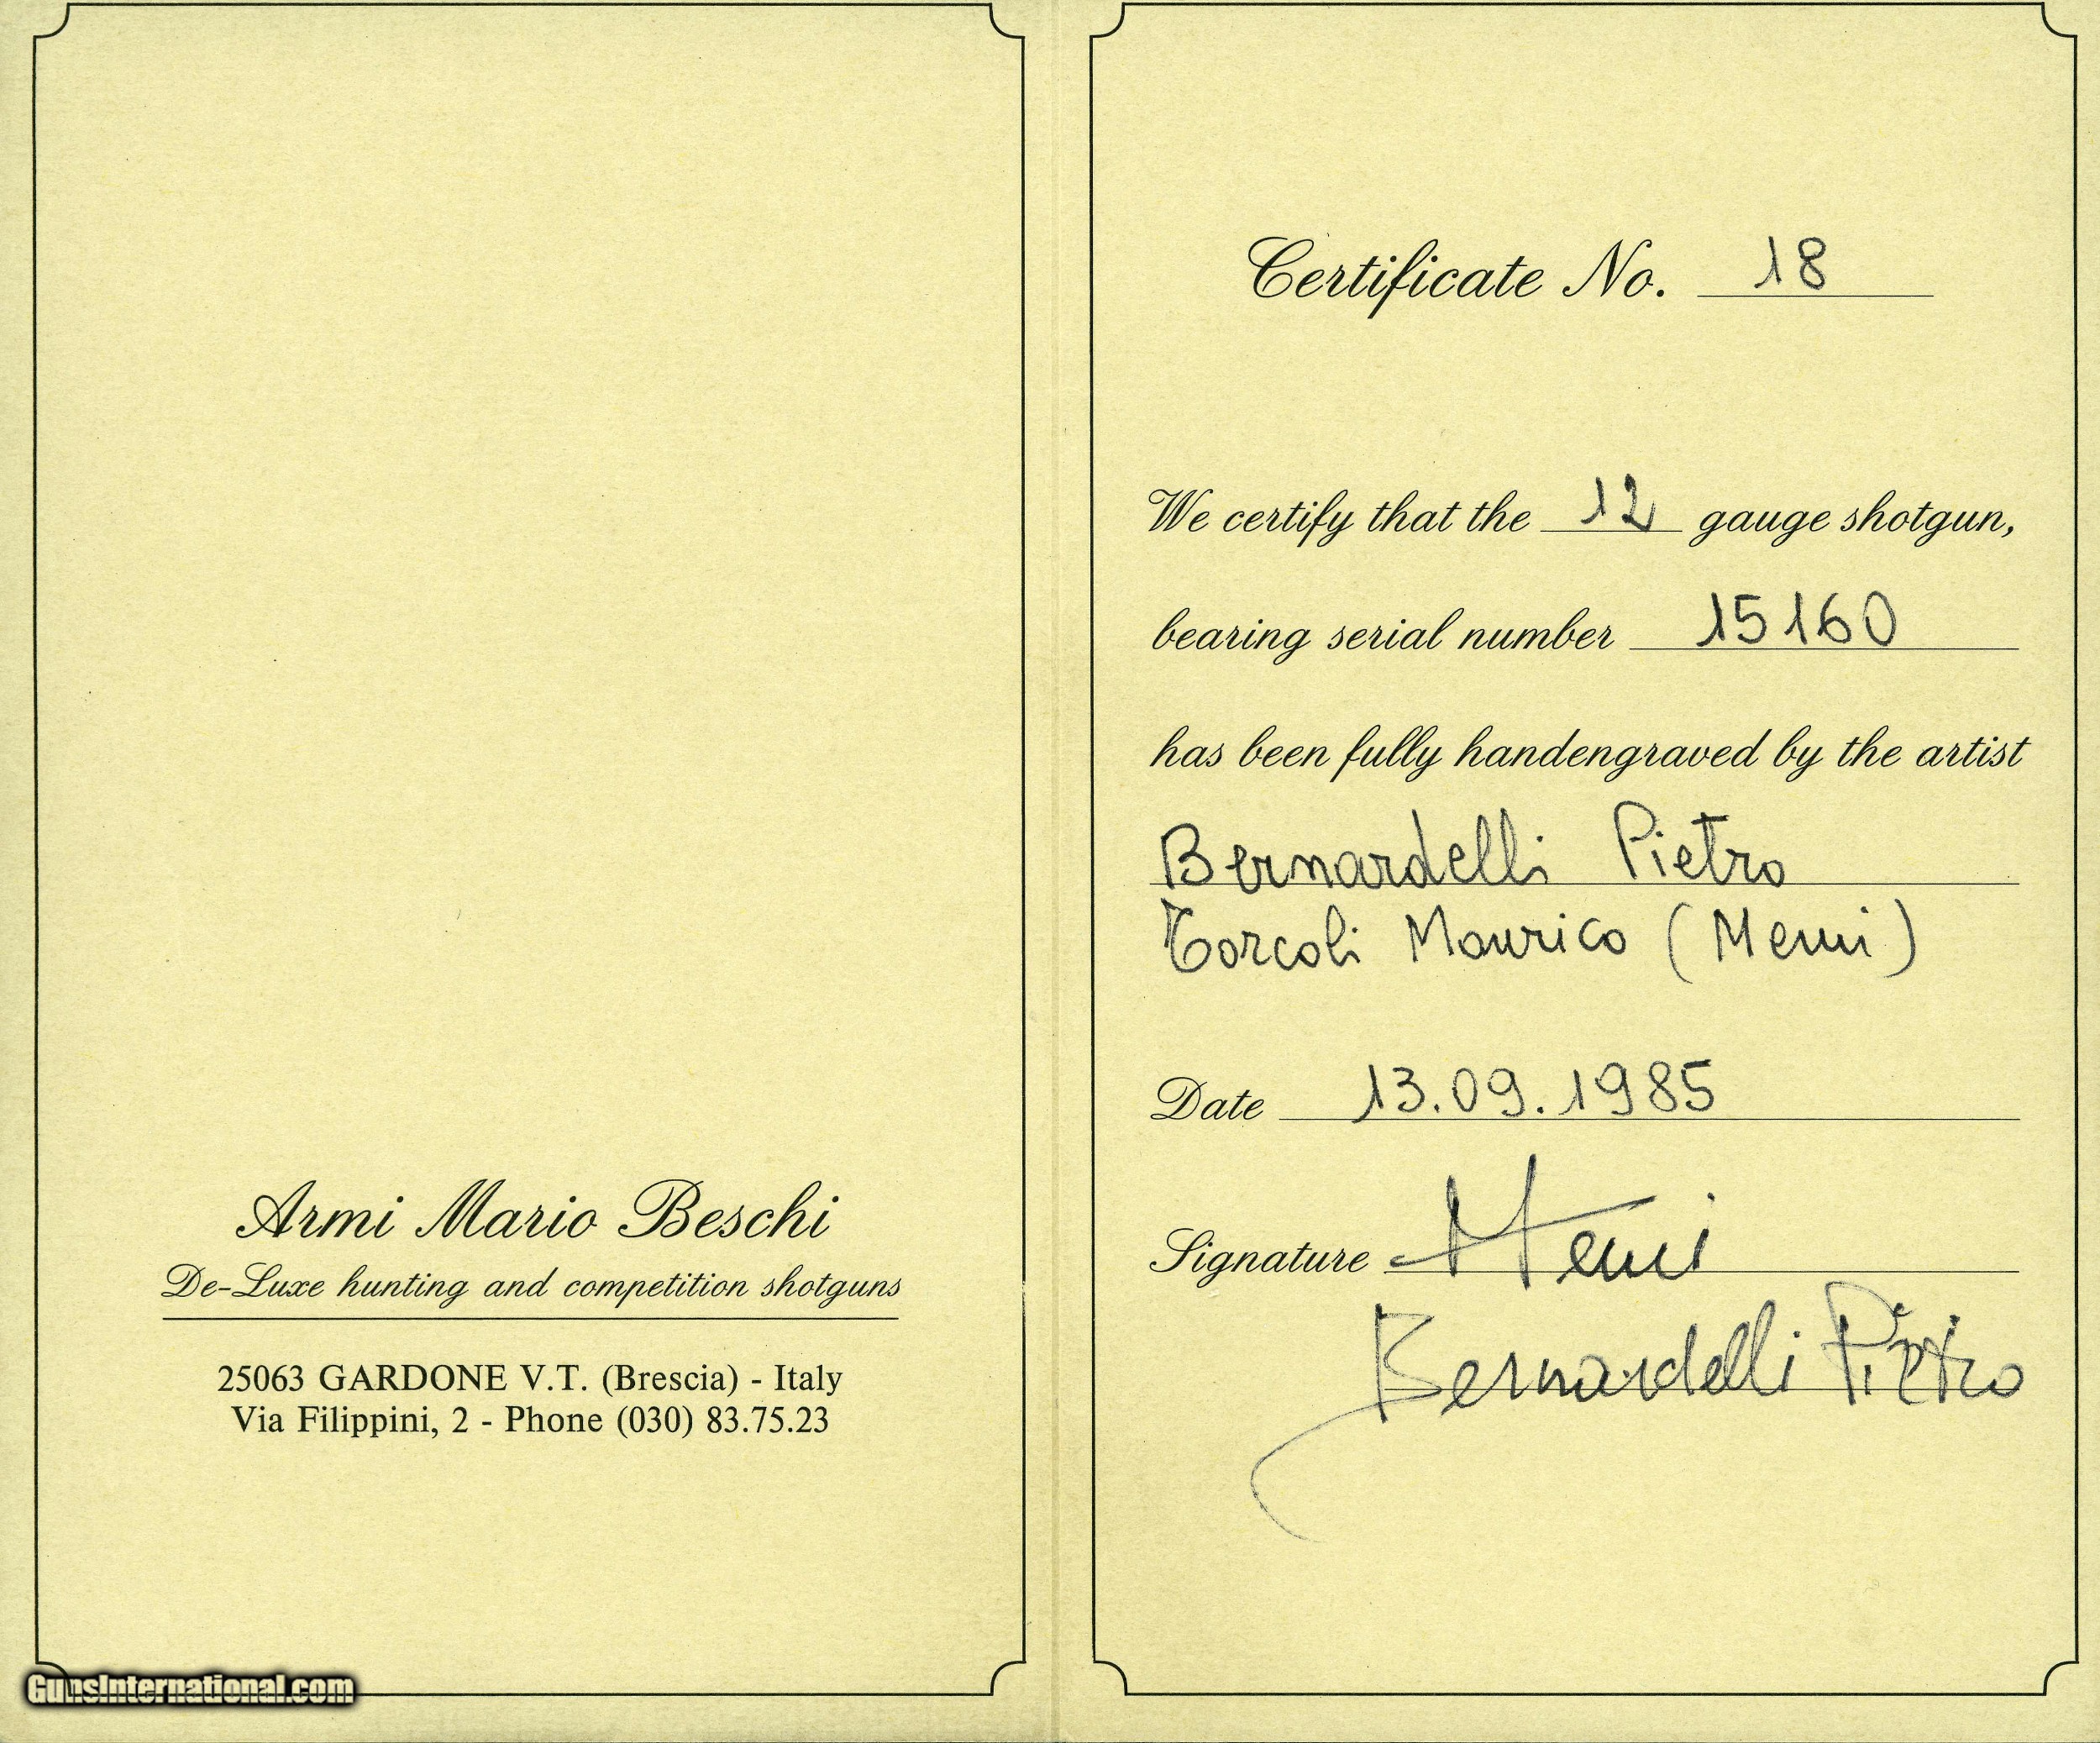 Armi Mario Beschi
De-Luxe hunting and competition shotguns
25063 GARDONE V.T. (Brescia) - Italy
Via Filippini, 2 - Phone (030) 83.75.23
GunsInternational.com
Certificate No. 18
We certify that the 12 gauge shotgun,
bearing serial number 15160
has been fully handengraved by the artist
Bernardelli Pietro
Torcoli Maurico (Memi)
Date 13.09.1985
Signature Memi
Bernardelli Pietro